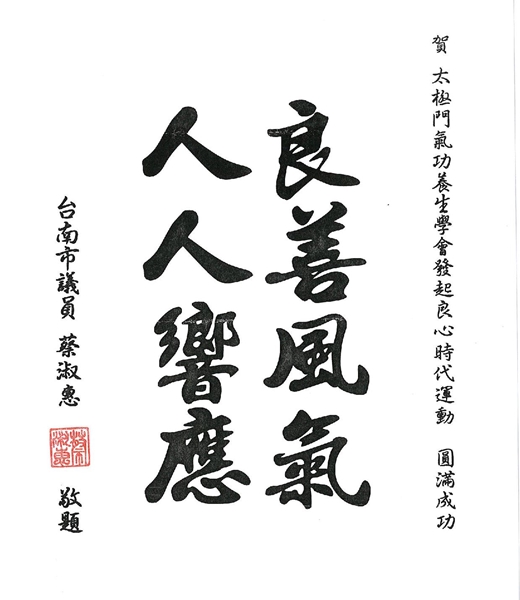 賀 太極門氣功養生學會發起良心時代運動 圓滿成功
良善風氣
人人響應
台南市議員 蔡淑惠 敬題